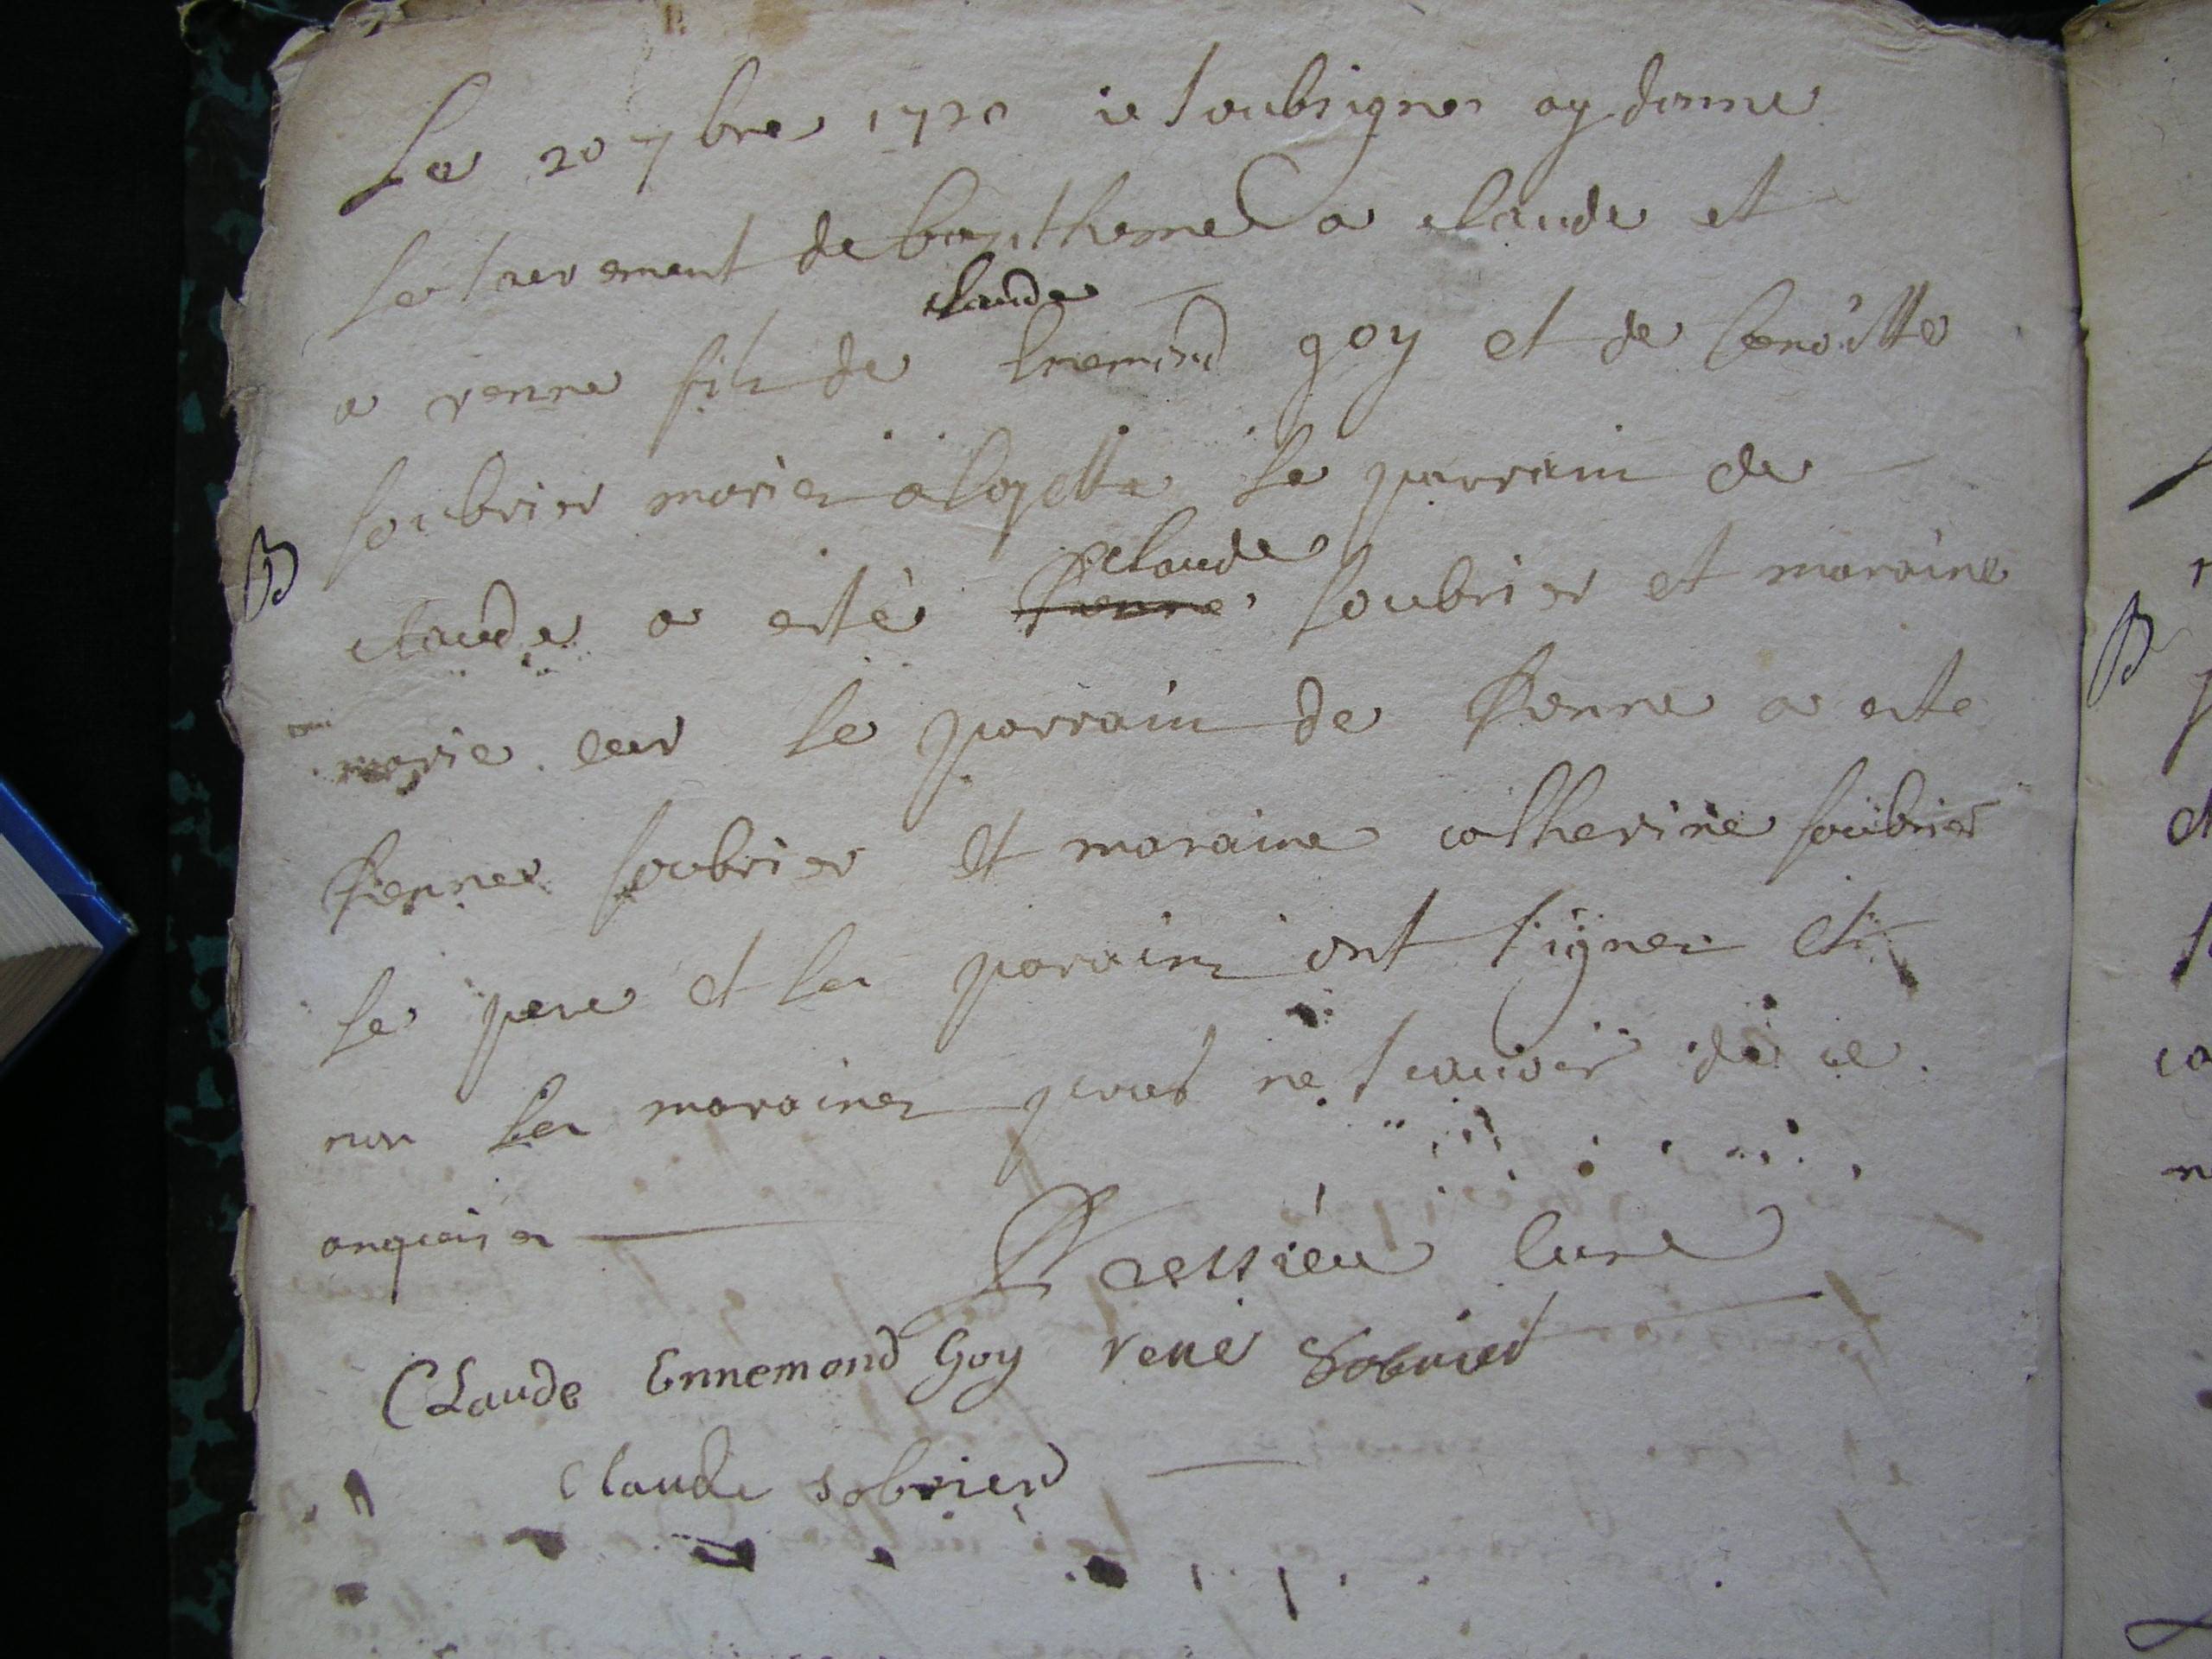 Le 20 7bre 1720 ie soubsigne ay donne
le sacrement de baptheme a claude et
claude
a renne fils de ennemond goy et de benoitte
soubrier maries a loyette le parrain de
claude
B claude a esté renne soubrier et maraine
marie le parrain de Renne a este
Renne soubrier et maraine catherine soubrier
le pere et les parains ont signes et
non les maraines pour ne scauoir de ce
enquises
Tessieu Cure
CLaude Ennemond Goy rené Sobrier
Claude sobrier
B